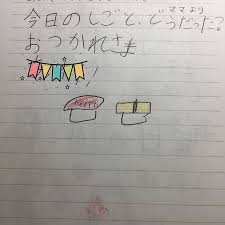 ママより
今日のしごと、どうだった?
おつかれさま